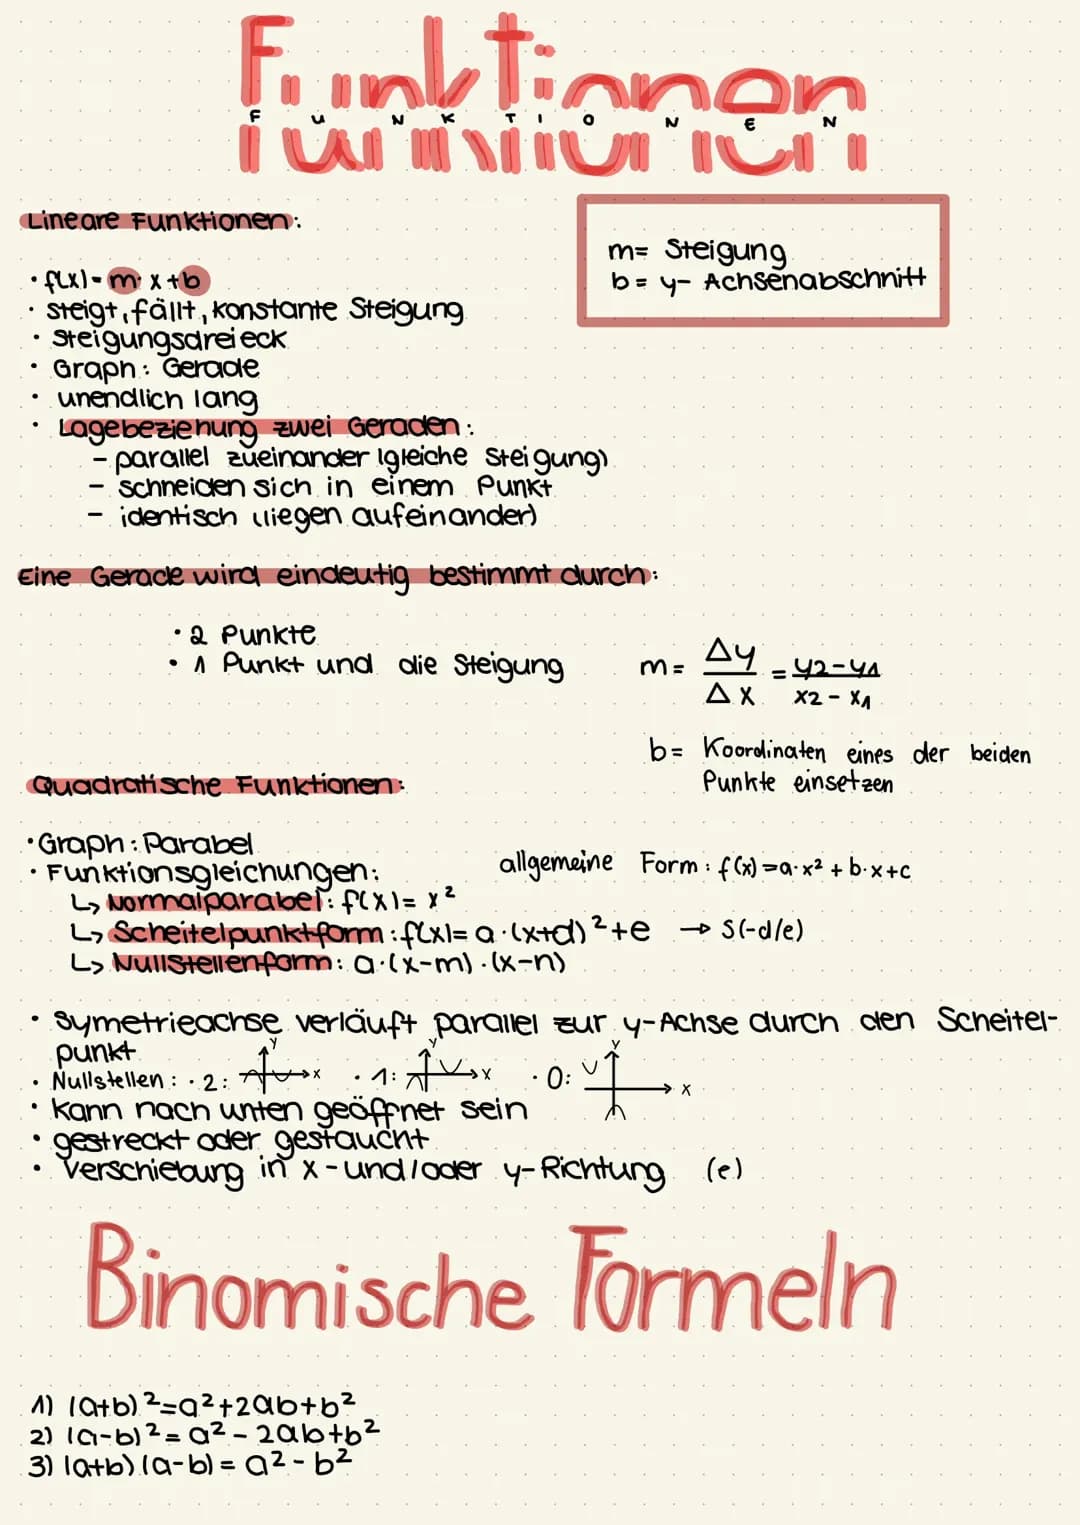 Funktionen
FUNKTIONEN
Lineare Funktionen:
m= Steigung
b= y- Achsenabschnitt
· f(x)= m· x+b
· steigt, fällt, konstante Steigung
· Steigungsdreieck
· Graph: Gerade
· unendlich lang
· Lagebeziehung zwei Geraden:
- parallel zueinander (gleiche Steigung)
- schneiden sich in einem Punkt
- identisch (liegen aufeinander)
Eine Gerade wird eindeutig bestimmt durch:
· 2 Punkte
· 1 Punkt und die Steigung
m= Δy/Δx = y2-y1/x2-x1
b= Koordinaten eines der beiden
Punkte einsetzen
Quadratische Funktionen:
· Graph: Parabel
· Funktionsgleichungen:
allgemeine Form: f(x)=a·x²+b·x+c
↳ Normalparabel: f(x)= x²
↳ Scheitelpunktform: f(x)= a·(x+d)²+e → S(-d/e)
↳ Nullstellenform: a·(x-m)·(x-n)
· Symetrieachse verläuft parallel zur y-Achse durch den Scheitel-
punkt
· Nullstellen: · 2: y x · 1: y x · 0: y x
· kann nach unten geöffnet sein
· gestreckt oder gestaucht
· Verschiebung in x-und/oder y-Richtung (e)
Binomische Formeln
1) (a+b)²=a²+2ab+b²
2) (a-b)²= a²-2ab+b²
3) (a+b)(a-b)= a²-b²